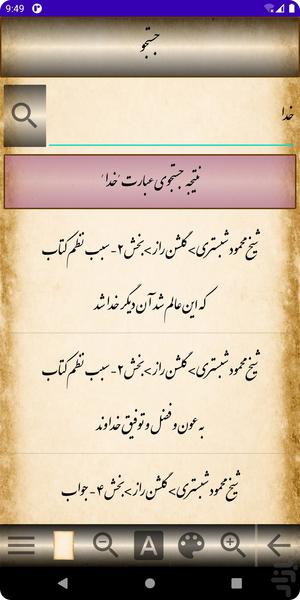 9:49
جستجو
خدا
نتیجه جستجوی عبارت 'خدا'
شیخ محمود شبستری> گلشن راز> بخش ۲ - سبب نظم کتاب
که این عالم شد آن دیگر خدا شد
شیخ محمود شبستری> گلشن راز> بخش ۲ - سبب نظم کتاب
به عون و فضل و توفیق خداوند
شیخ محمود شبستری> گلشن راز> بخش ۴ - جواب
A
بازار